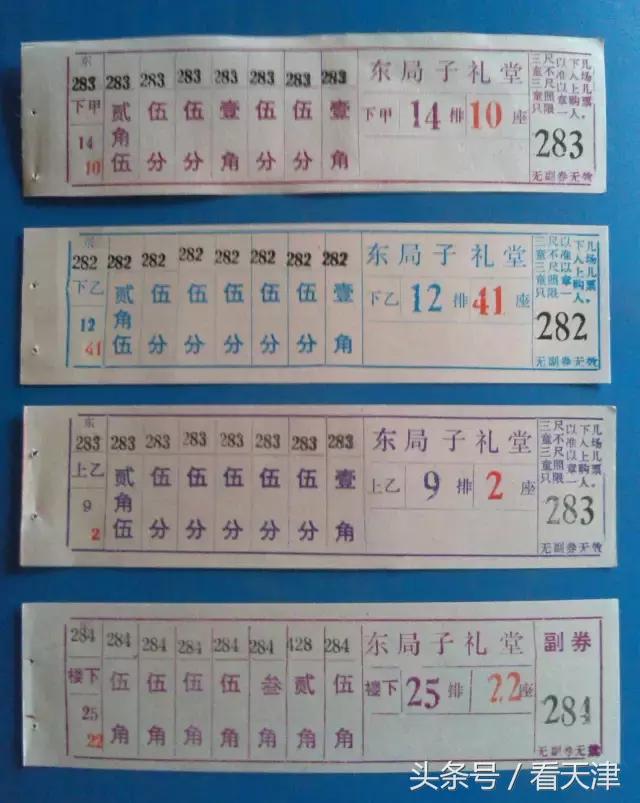 东
283 283 283 283 283 283 283 283
下甲
14
10
贰角伍 伍分 伍分 壹角 伍分 伍分 壹角
东局子礼堂
下甲 14 排 10 座
三尺以下儿
童不准入场
三尺以上儿
童照章购票
只限一人。
283
无副券无效
东
282 282 282 282 282 282 282 282
下乙
12
41
贰角伍 伍分 伍分 伍分 伍分 伍分 壹角
东局子礼堂
下乙 12 排 41 座
三尺以下儿
童不准入场
三尺以上儿
童照章购票
只限一人。
282
无副券无效
东
283 283 283 283 283 283 283 283
上乙
9
2
贰角伍 伍分 伍分 伍分 伍分 伍分 壹角
东局子礼堂
上乙 9 排 2 座
三尺以下儿
童不准入场
三尺以上儿
童照章购票
只限一人。
283
无副券无效
284 284 284 284 284 284 428 284
楼下
25
22
伍角 伍角 伍角 伍角 叁角 贰角 伍角
东局子礼堂
楼下 25 排 22 座
副券
284
无副券无效
头条号 / 看天津